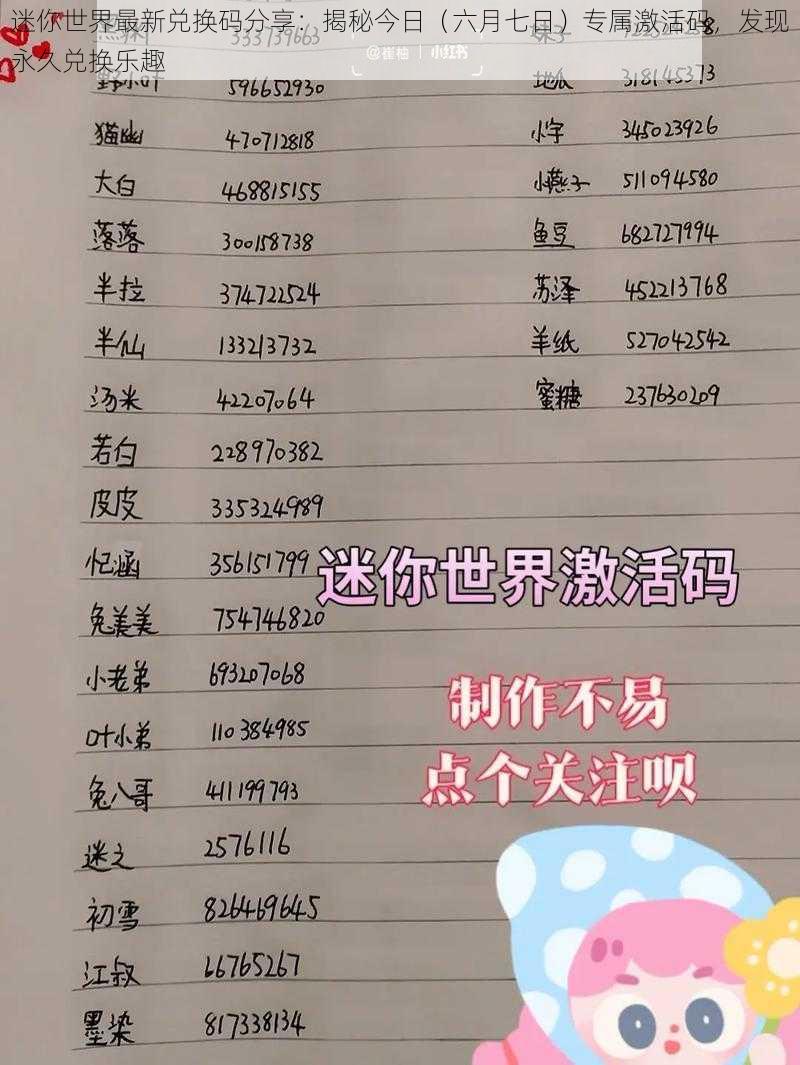 迷你世界最新兑换码分享：揭秘今日（六月七日）专属激活码，发现
永久兑换乐趣
333739663
@崔柚 | 小红书
野小叶 596652930
地瓜 318145373
猫幽 470712818
小字 345023926
大白 468815155
小燕子 511094580
落落 300158738
鱼豆 682727994
半拉 374722524
苏泽 452213768
半仙 133213732
羊纸 527042542
汤米 42207064
蜜糖 237630209
若白 228970382
皮皮 335324989
忆涵 356151799
迷你世界激活码
兔美美 754746820
小老弟 693207068
制作不易
叶小弟 110384985
点个关注呗
兔八哥 411199793
迷之 2576116
初雪 826469645
江叔 66765267
墨染 817338134